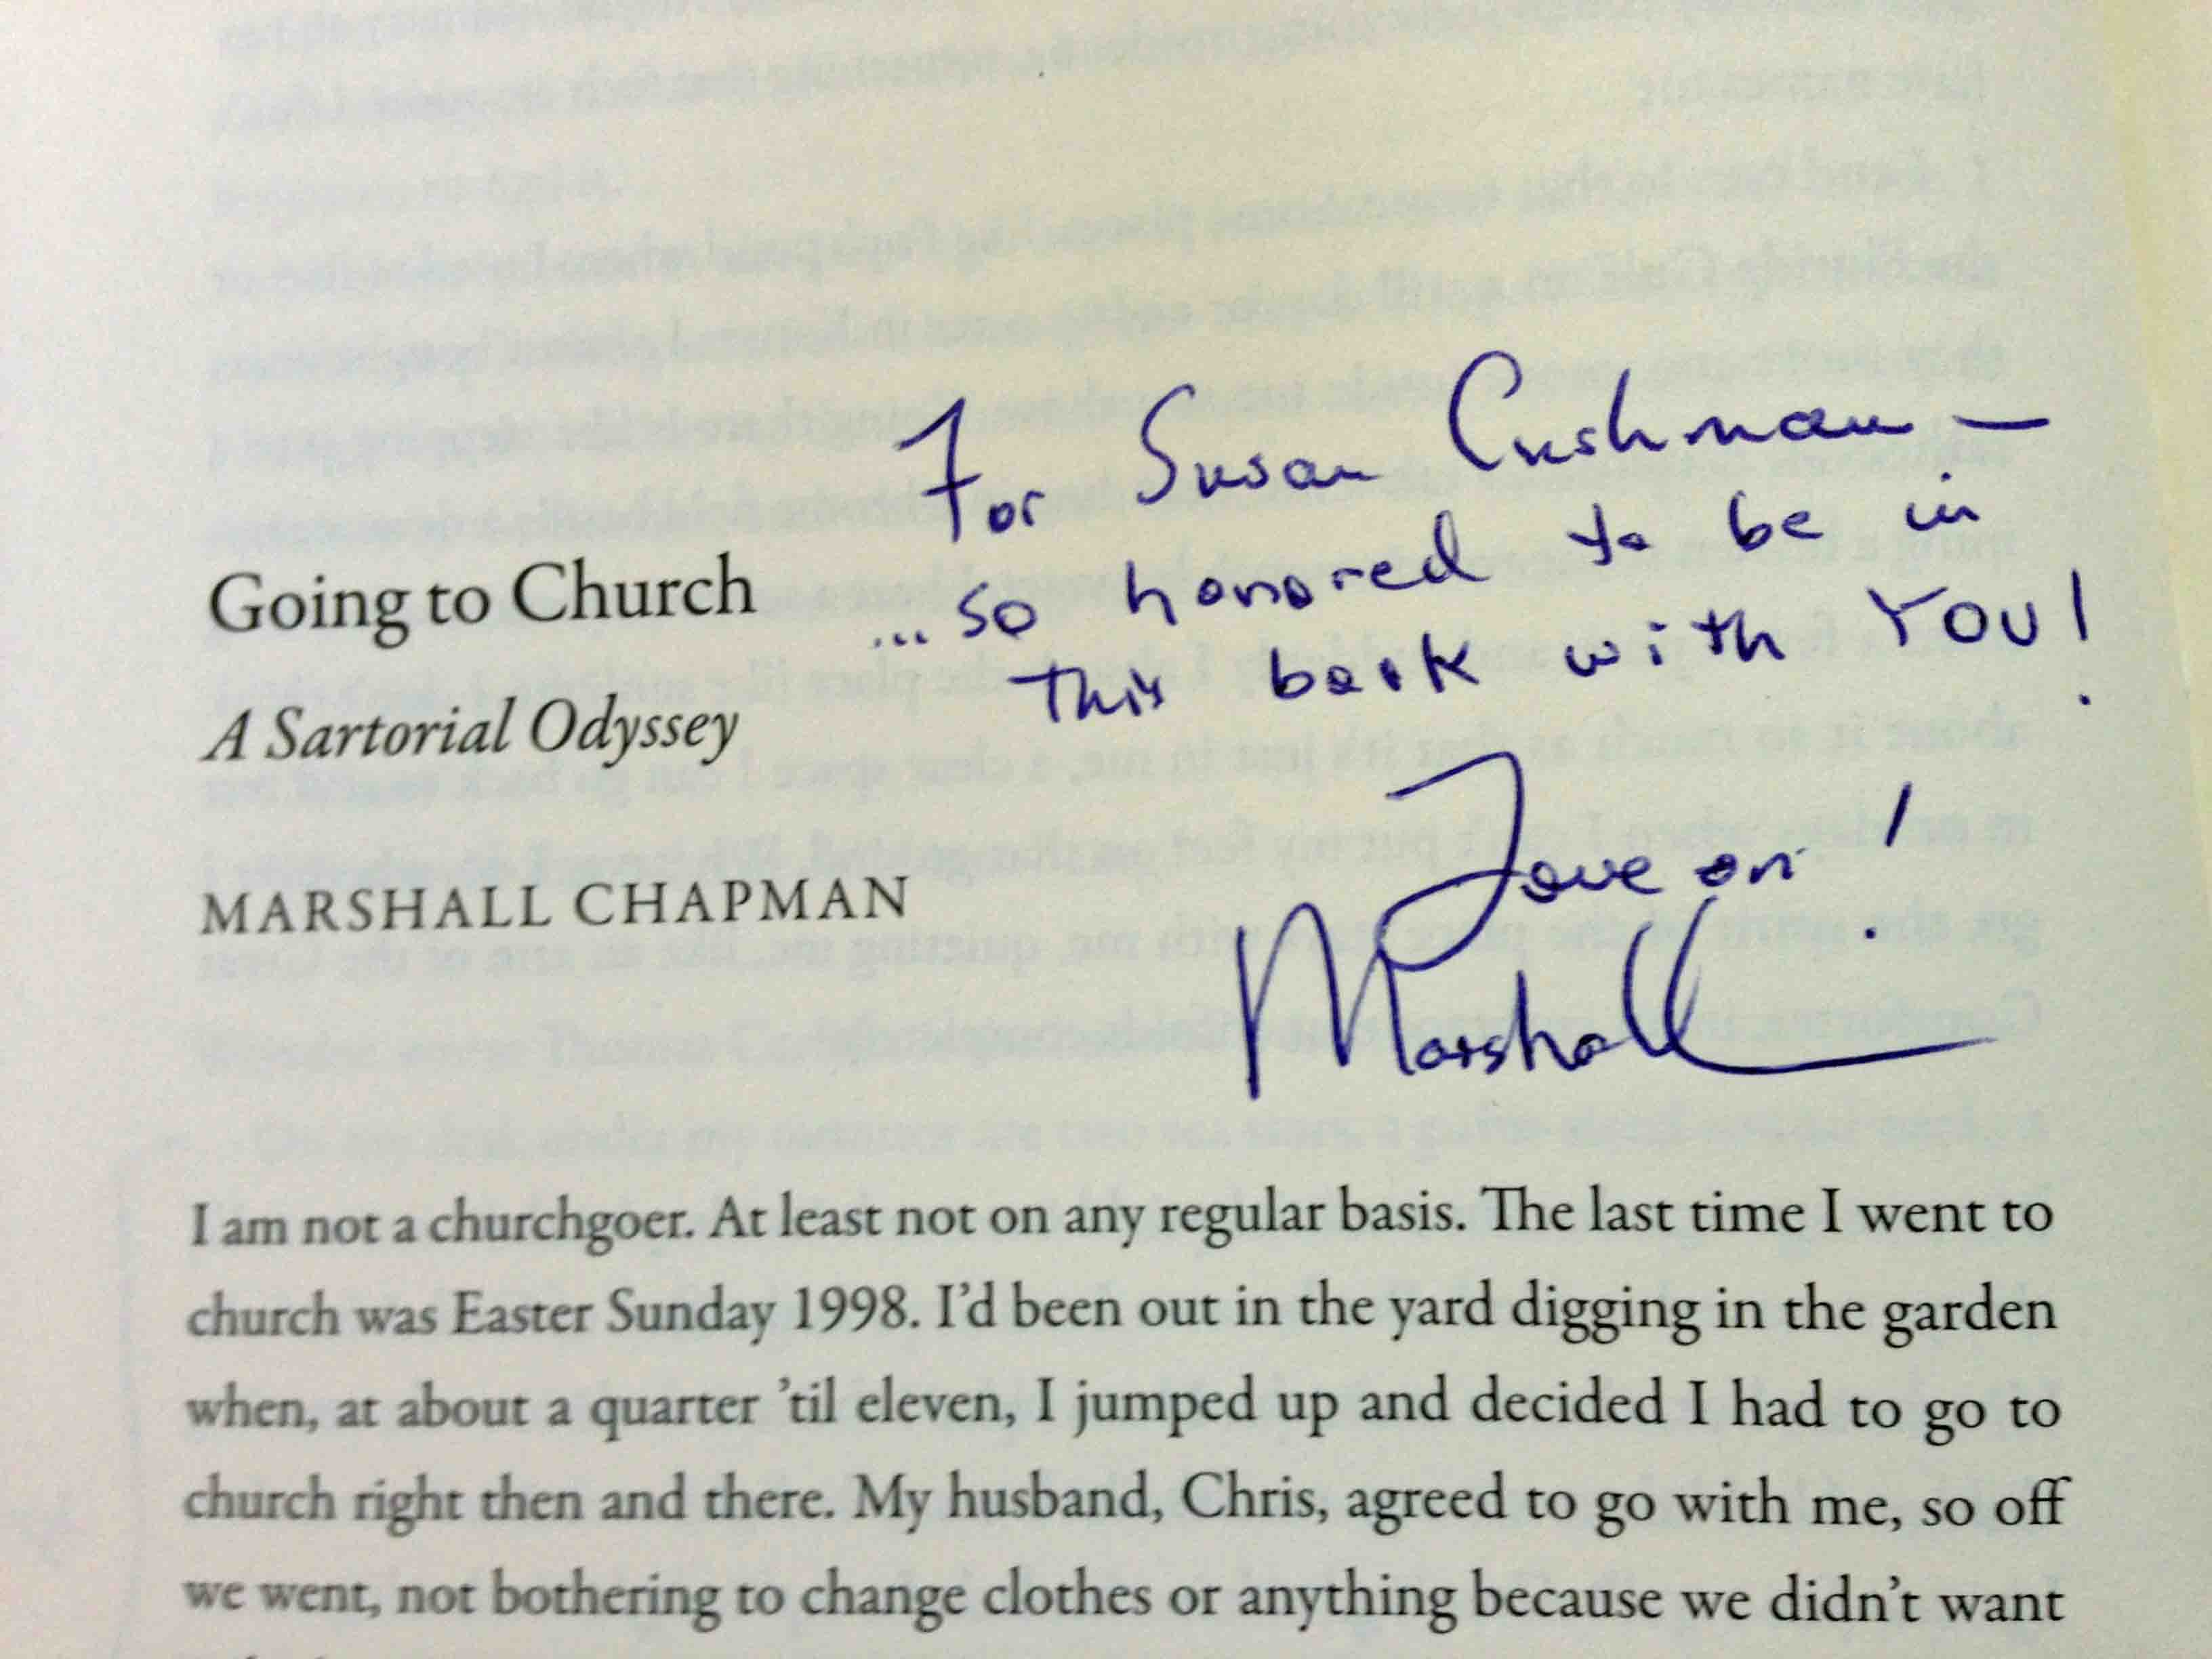 For Susan Cushman —
...so honored to be in
this book with YOU!
Going to Church
A Sartorial Odyssey
Love on!
MARSHALL CHAPMAN
Marshall
I am not a churchgoer. At least not on any regular basis. The last time I went to
church was Easter Sunday 1998. I’d been out in the yard digging in the garden
when, at about a quarter ’til eleven, I jumped up and decided I had to go to
church right then and there. My husband, Chris, agreed to go with me, so off
we went, not bothering to change clothes or anything because we didn’t want